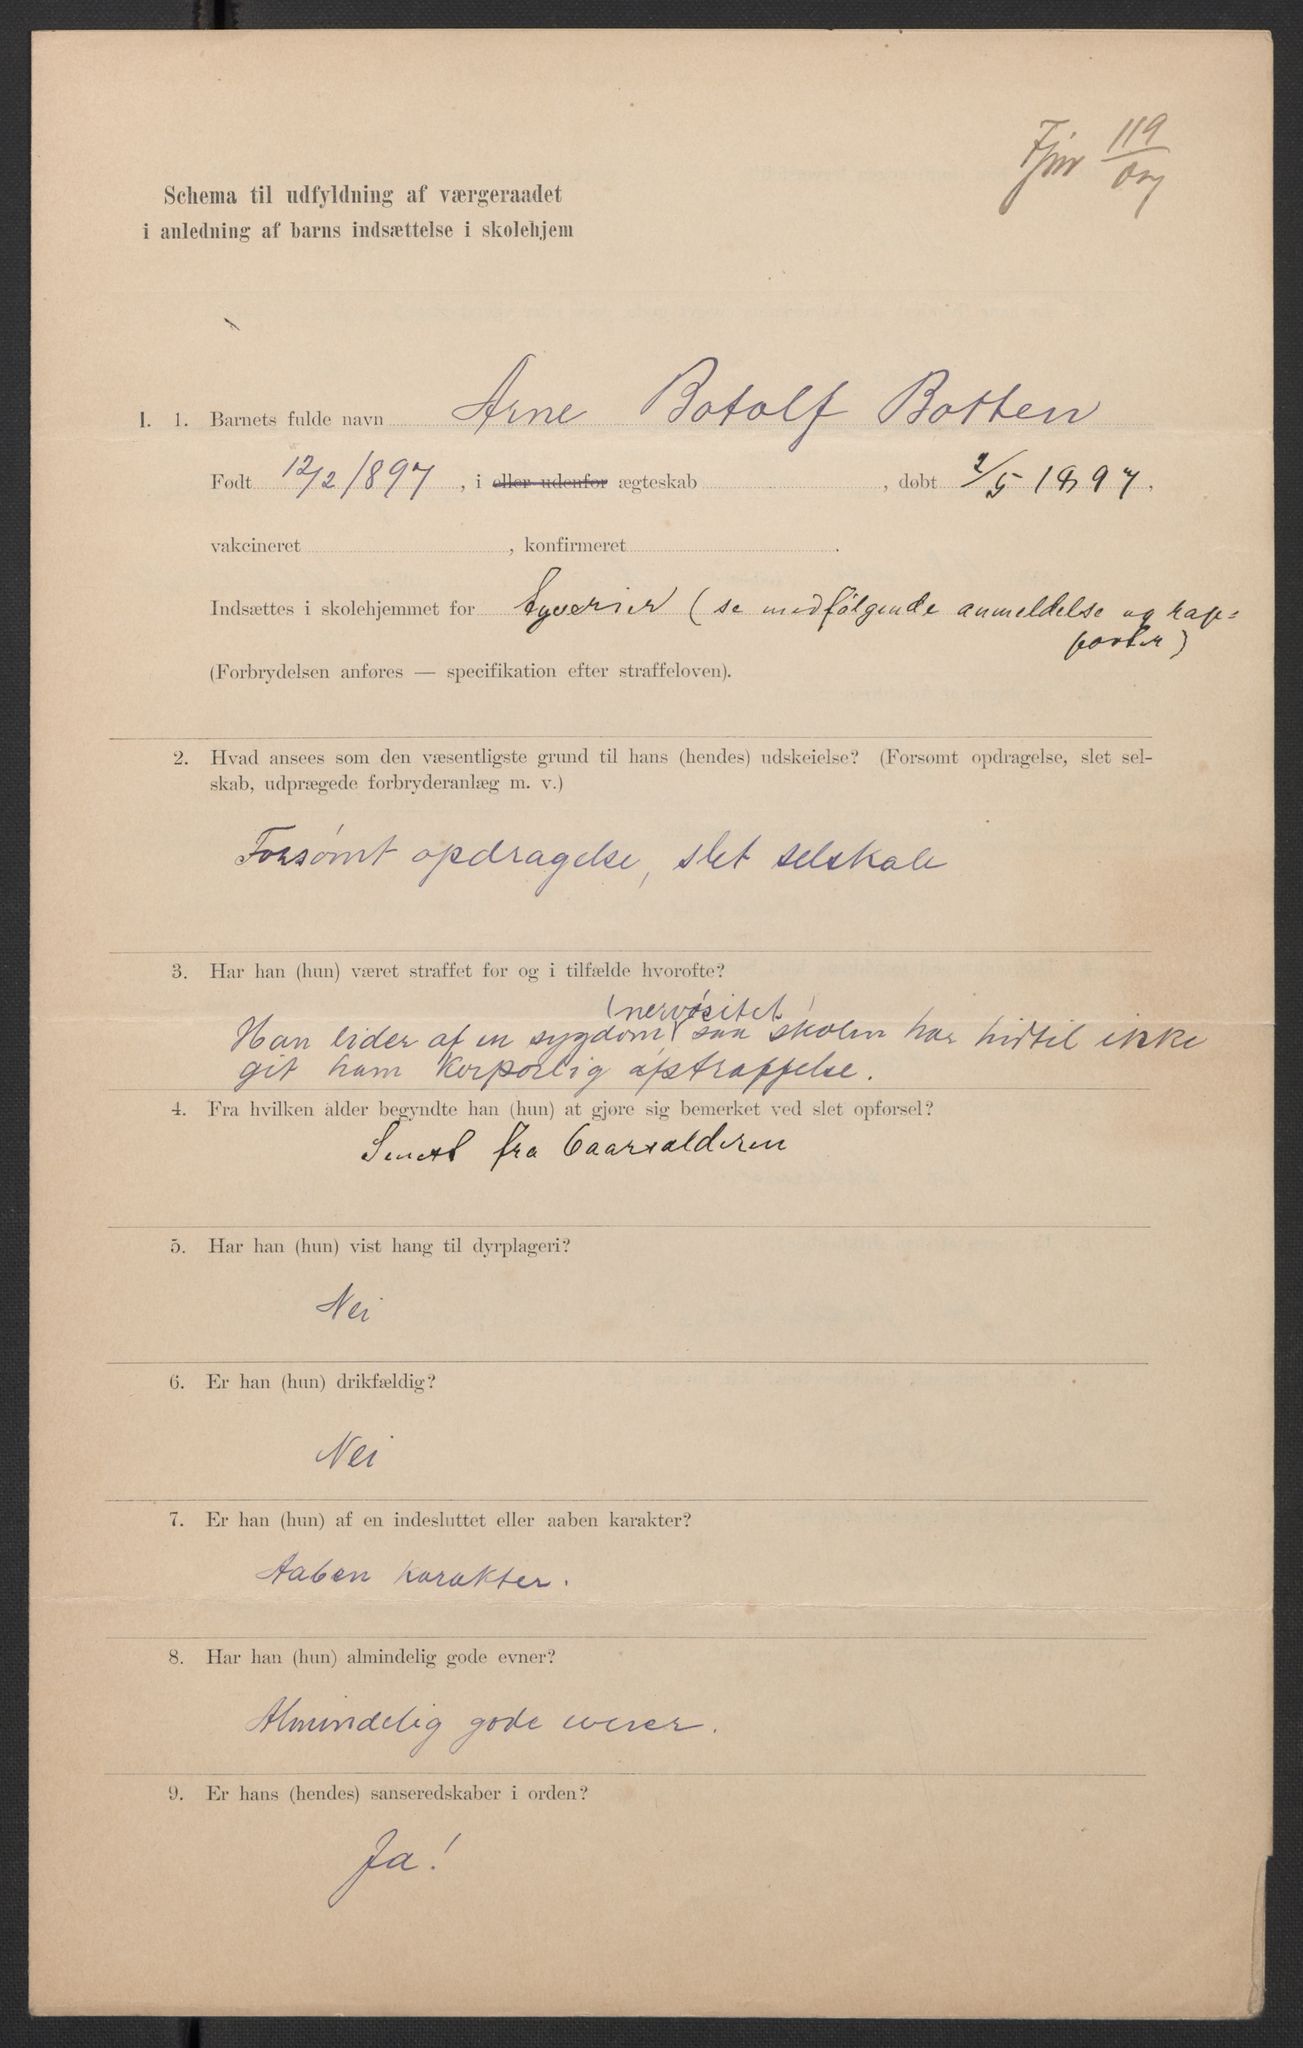 119
Schema til udfyldning af værgeraadet
i anledning af barns indsættelse i skolehjem
I. 1. Barnets fulde navn Arne Botolf Botten
Født 12/2 1897, i eller udenfor ægteskab , døbt 2/5 1897.
vakcineret , konfirmeret .
Indsættes i skolehjemmet for Tyverier (se medfølgende anmeldelse og rap=
porter)
(Forbrydelsen anføres — specifikation efter straffeloven).
2. Hvad ansees som den væsentligste grund til hans (hendes) udskeielse? (Forsømt opdragelse, slet sel-
skab, udprægede forbryderanlæg m. v.)
Forsømt opdragelse, slet selskab
3. Har han (hun) været straffet for og i tilfælde hvorofte?
(nervøsitet)
Han lider af en sygdom, saa skolen har hidtil ikke
git ham korporlig afstraffelse.
4. Fra hvilken alder begyndte han (hun) at gjøre sig bemerket ved slet opførsel?
Senest fra 6aarsalderen
5. Har han (hun) vist hang til dyrplageri?
Nei
6. Er han (hun) drikfældig?
Nei
7. Er han (hun) af en indesluttet eller aaben karakter?
Aaben karakter.
8. Har han (hun) almindelig gode evner?
Almindelig gode evner.
9. Er hans (hendes) sanseredskaber i orden?
Ja!